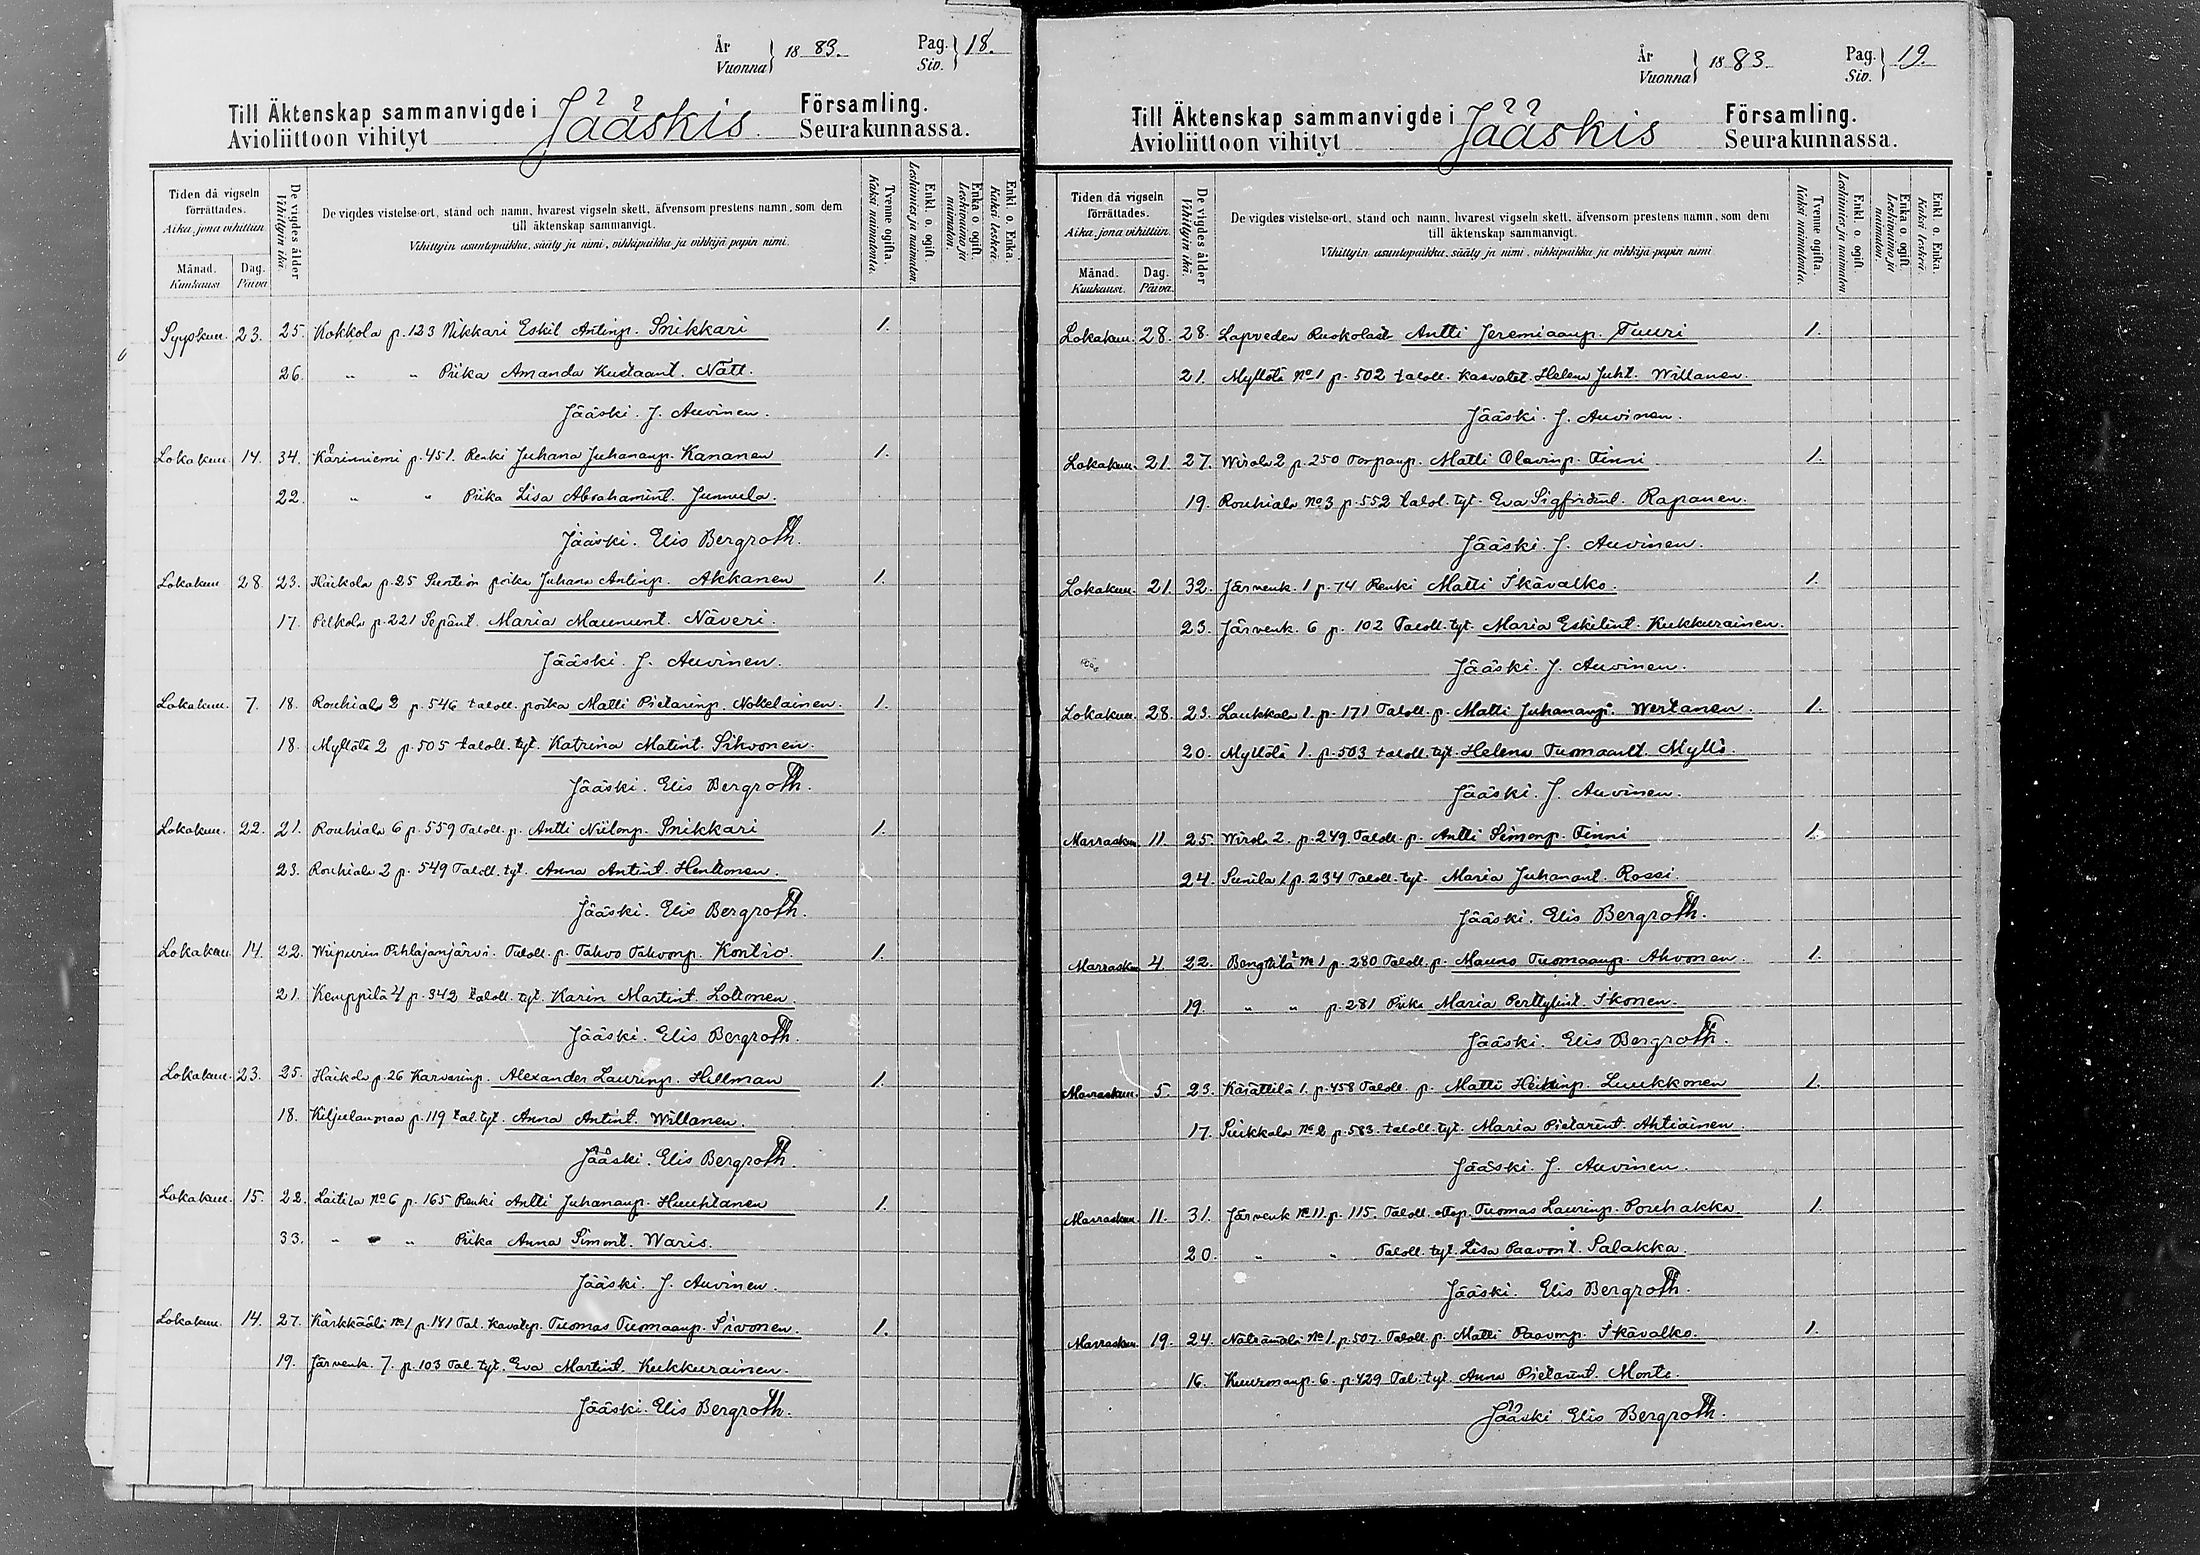 År
Vuonna } 1883. Pag.
Siv. } 18.
Till Äktenskap sammanvigde i Jääskis Församling.
Avioliittoon vihityt Seurakunnassa.
Tiden då vigseln
förrättades.
Aika, jona vihittiin.
Månad.
Kuukausi
Dag.
Päivä
De vigdes ålder
Vihittyin ikä.
De vigdes vistelse-ort, stånd och namn, hvarest vigseln skett, äfvensom prestens namn, som dem
till äktenskap sammanvigt.
Vihittyin asuntopaikka, sääty ja nimi, vihkipaikka ja vihkijä papin nimi.
Tvenne ogifta.
Kaksi naimatonta.
Enkl. o. ogift.
Leskimies ja naimaton.
Enka o ogift.
Leskivaimo ja
naimaton.
Enkl o. Enka.
Kaksi leskeä.
Syyskuu. 23. 25. Kokkola p. 123 Nikkari Eskil Antinp. Snikkari 1.
26. " " Piika Amanda Kustaant. Nätt.
Jääski. J. Auvinen.
Lokakuu. 14. 34. Kärinniemi p. 451. Renki Juhana Juhananp. Kananen 1.
22. " " Piika Lisa Abrahamint. Junnula.
Jääski. Elis Bergroth.
Lokakuu 28. 23. Haikola p. 25 Suntion poika Juhana Antinp. Akkanen 1.
17. Pelkola p. 221 Sepänt. Maria Maununt. Näveri.
Jääski. J. Auvinen.
Lokakuu. 7. 18. Rouhiala 2 p. 546 taloll. poika Matti Pietarinp. Nokelainen. 1.
18. Myllölä 2 p. 505 taloll. tyt. Katrina Matint. Sihvonen.
Jääski. Elis Bergroth.
Lokakuu. 22. 21. Rouhiala 6 p. 559 Taloll. p. Antti Niilonp. Snikkari 1.
23. Rouhiala 2 p. 549 Taloll. tyt. Anna Antint. Henttonen.
Jääski. Elis Bergroth.
Lokakuu. 14. 22. Wiipurin Pihlajamjärvi. Taloll. p. Tahvo Tahvonp. Kontio. 1.
21. Kemppilä 4 p. 342 taloll. tyt. Karin Martint. Lottonen
Jääski. Elis Bergroth.
Lokakuu. 23. 25. Haikola p. 26 Karvarinp. Alexander Laurinp. Hillman 1.
18. Kiljulanmaa p. 119 tal. tyt. Anna Antint. Willanen.
Jääski. Elis Bergroth.
Lokakuu. 15. 22. Laitila No 6 p. 165 Renki Antti Juhananp. Huuhtanen 1.
33. " " Piika Anna Simont. Waris.
Jääski. J. Auvinen.
Lokakuu. 14. 27. Kärkkäälä No 1 p. 141 Tal. kasvatp. Tuomas Tuomaanp. Sivonen. 1.
19. Järvenk. 7. p. 103 Tal. tyt. Eva Martint. Kukkurainen.
Jääski. Elis Bergroth.
År
Vuonna } 1883. Pag.
Siv. } 19.
Till Äktenskap sammanvigde i Jääskis Församling.
Avioliittoon vihityt Seurakunnassa.
Tiden då vigseln
förrättades.
Aika, jona vihittiin.
Månad.
Kuukausi.
Dag.
Päivä.
De vigdes ålder
Vihittyin ikä.
De vigdes vistelse-ort, stånd och namn, hvarest vigseln skett, äfvensom prestens namn, som dem
till äktenskap sammanvigt.
Vihittyin asuntopaikka, sääty ja nimi, vihkipaikka ja vihkijä-papin nimi
Tvenne ogifta.
Kaksi naimatonta.
Enkl. o. ogift.
Leskimies ja naimaton
Enka o. ogift.
Leskivaimo ja
naimaton.
Enkl. o. Enka.
Kaksi leskeä.
Lokakuu. 28. 28. Lapveden Ruskolasta Antti Jeremiaanp. Tuuri 1.
21. Myllölä No 1 p. 502 taloll. kasvatet Helena Juht. Willanen.
Jääski. J. Auvinen.
Lokakuu. 21. 27. Wirola 2 p. 250 Torpanp. Matti Olavinp. Finni 1.
19. Rouhiala No 3 p. 552 talol. tyt. Eva Sigfridint. Rapanen.
Jääski. J. Auvinen.
Lokakuu. 21. 32. Järvenk. 1 p. 74 Renki Matti Ikävalko. 1.
23. Järvenk. 6 p. 102 Taloll. tyt. Maria Eskilint. Kukkurainen.
Jääski. J. Auvinen.
Lokakuu. 28. 23. Laukkala 1. p. 171 Taloll. p. Matti Juhananp. Wertanen. 1.
20. Myllölä 1. p. 503 taloll. tyt. Helena Tuomaant. Myllö.
Jääski. J. Auvinen.
Marraskuu. 11. 25. Wirola 2. p. 249 Taloll. p. Antti Simonp. Finni 1.
24. Sunila 1 p. 234 Taloll. tyt. Maria Juhanant. Rossi
Jääski. Elis Bergroth.
Marraskuu 4 22. Bengtilä No 1 p. 280 Taloll. p. Mauno Tuomaanp. Ahvonen. 1.
19. " " p. 281 Piika Maria Perttylint. Ikonen.
Jääski. Elis Bergroth.
Marraskuu. 5. 23. Kärättilä 1. p. 458 Taloll. p. Matti Heikinp. Luukkonen 1.
17. Suikkala No 2 p. 583. taloll. tyt. Maria Pietarint. Ahtiainen
Jääski. J. Auvinen.
Marraskuu. 11. 31. Järvenk No 11. p. 115. Taloll. Tuomas Laurinp. Pouhakka 1.
20. " " Taloll. tyt. Lisa Paavont. Salakka.
Jääski. Elis Bergroth.
Marraskuu. 19. 24. No 1. p. 507. Taloll. p. Matti Paavonp. Ikävalko. 1.
16. Kuurmanp. 6. p. 429 Tal. tyt. Anna Pietarint. Monto.
Jääski Elis Bergroth.